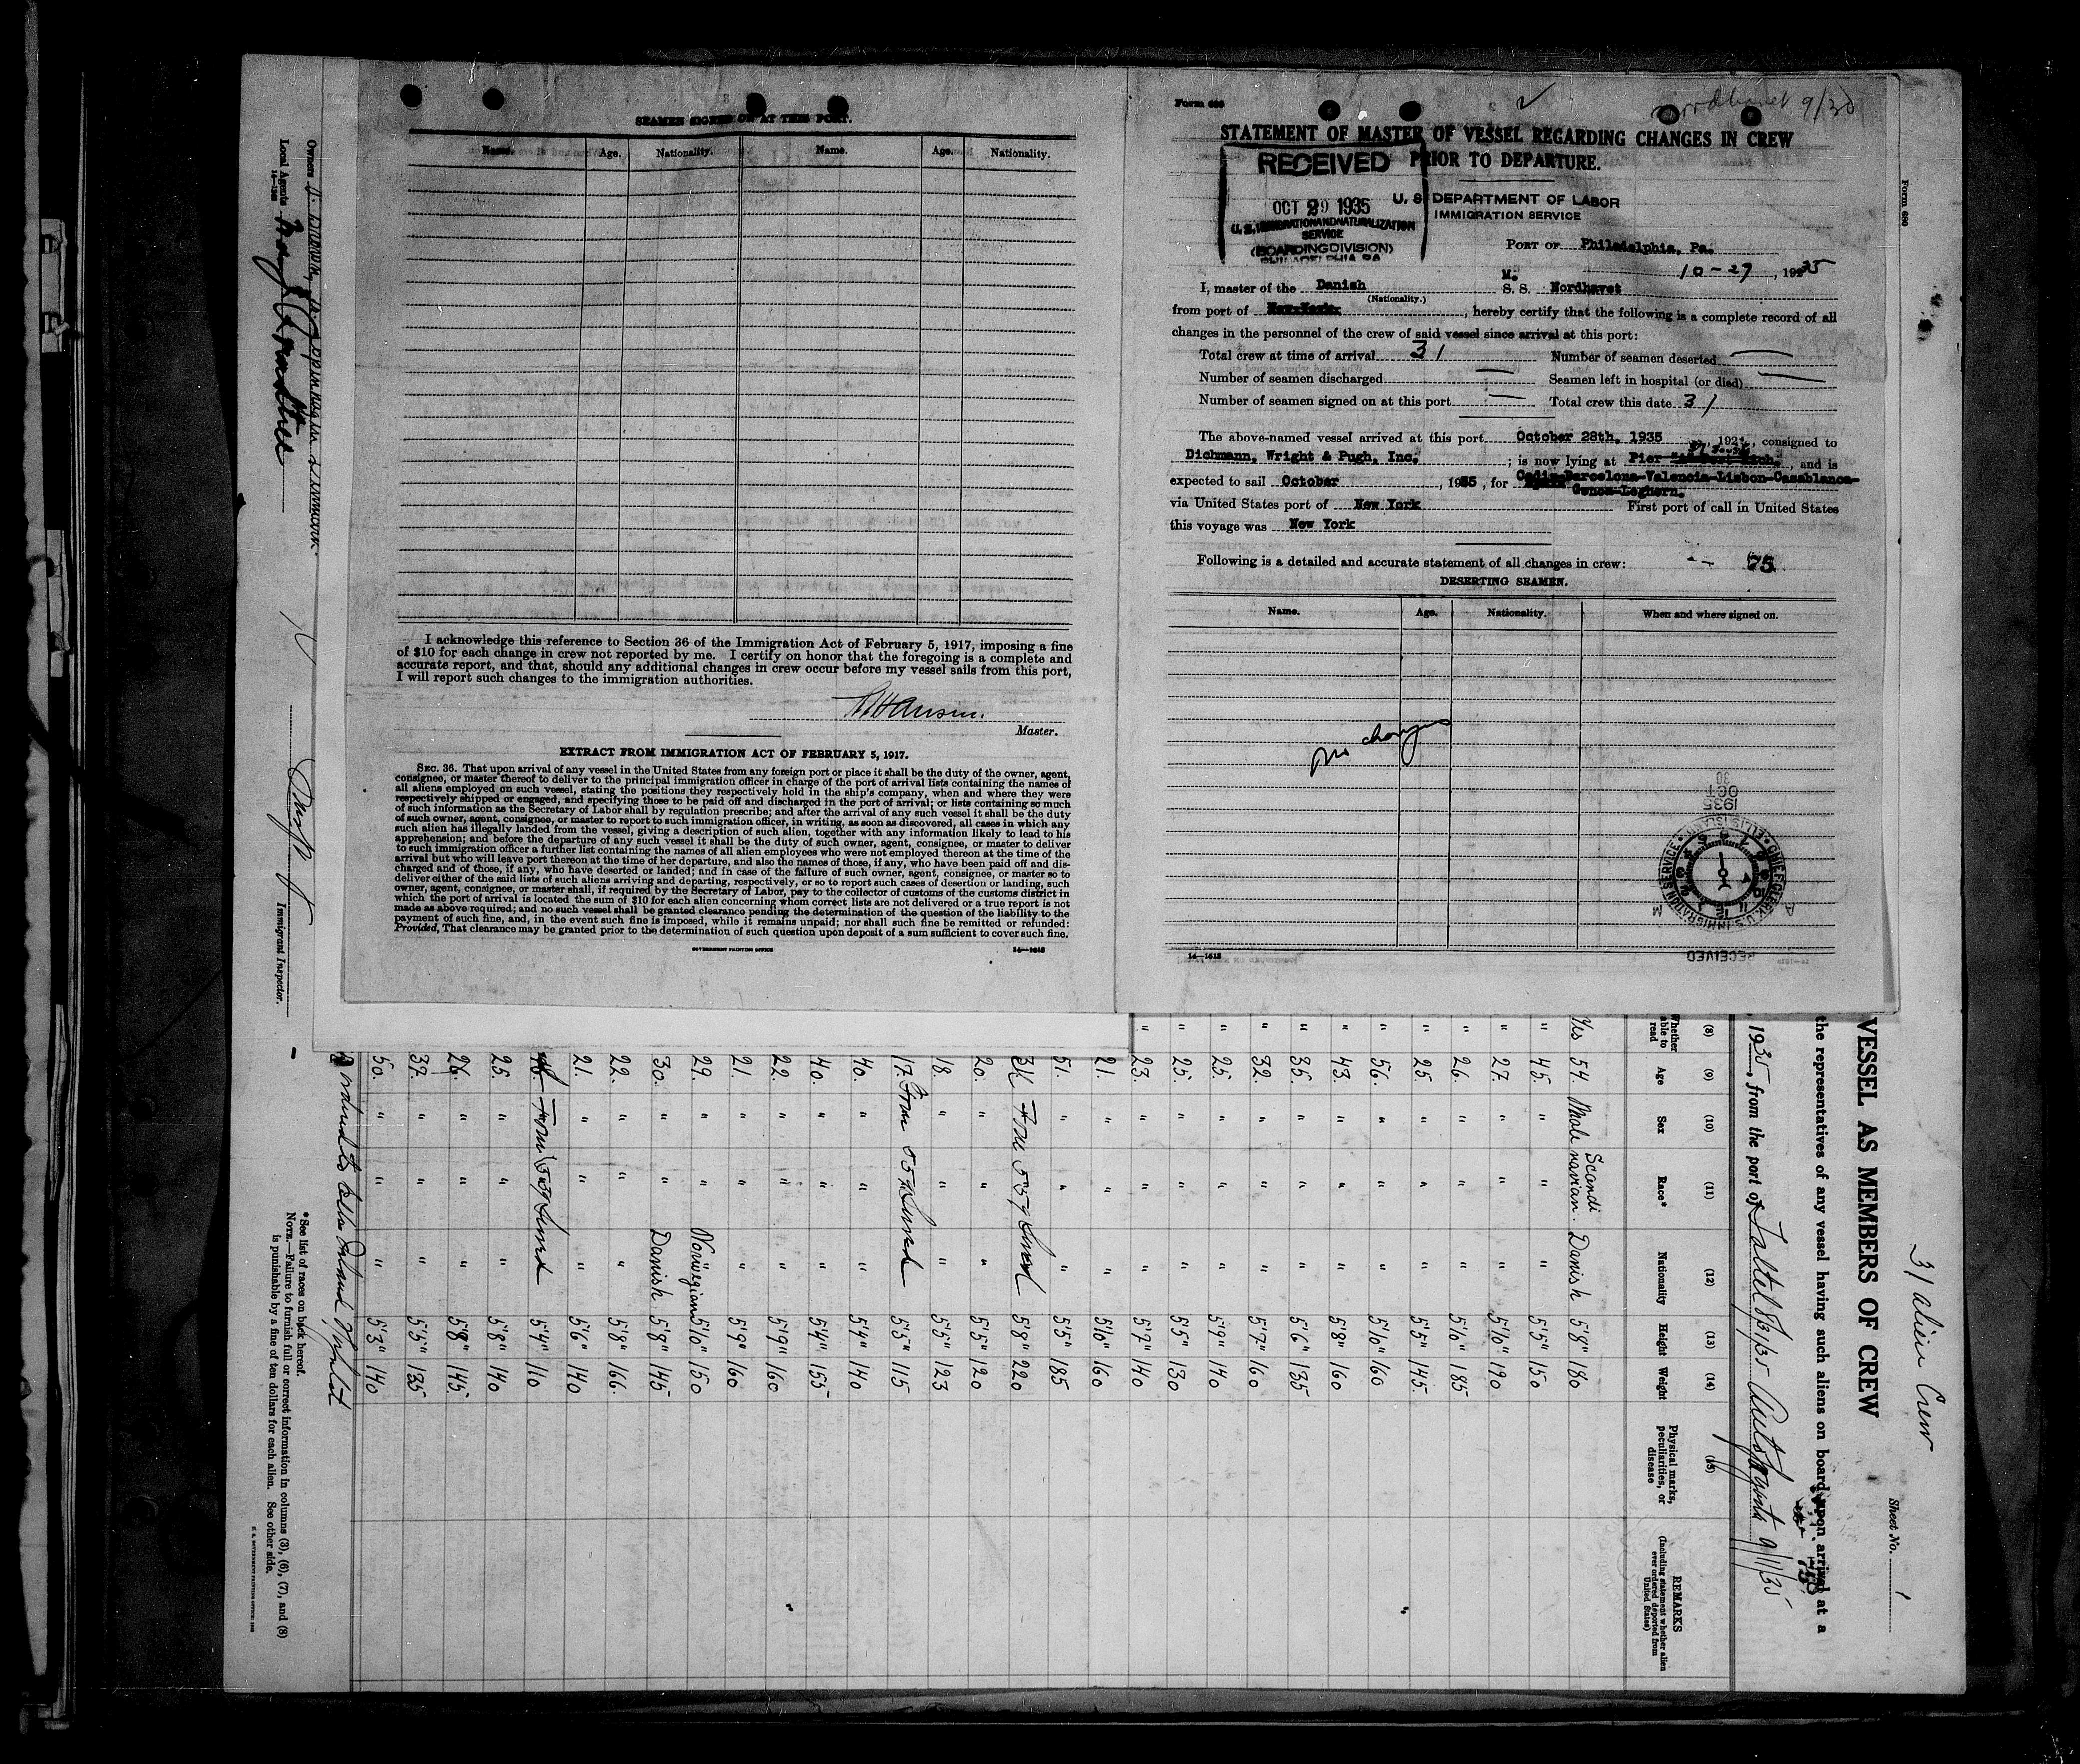 SEAMEN SIGNED ON AT THIS PORT.
Name. Age. Nationality. Name. Age. Nationality.
I acknowledge this reference to Section 36 of the Immigration Act of February 5, 1917, imposing a fine
of $10 for each change in crew not reported by me. I certify on honor that the foregoing is a complete and
accurate report, and that, should any additional changes in crew occur before my vessel sails from this port,
I will report such changes to the immigration authorities.
Master.
EXTRACT FROM IMMIGRATION ACT OF FEBRUARY 5, 1917.
SEC. 36. That upon arrival of any vessel in the United States from any foreign port or place it shall be the duty of the owner, agent,
consignee, or master thereof to deliver to the principal immigration officer in charge of the port of arrival lists containing the names of
all aliens employed on such vessel, stating the positions they respectively hold in the ship's company, when and where they were
respectively shipped or engaged, and specifying those to be paid off and discharged in the port of arrival; or lists containing so much
of such information as the Secretary of Labor shall by regulation prescribe; and after the arrival of any such vessel it shall be the duty
of such owner, agent, consignee, or master to report to such immigration officer, in writing, as soon as discovered, all cases in which any
such alien has illegally landed from the vessel, giving a description of such alien, together with any information likely to lead to his
apprehension; and before the departure of any such vessel it shall be the duty of such owner, agent, consignee, or master to deliver
to such immigration officer a further list containing the names of all alien employees who were not employed thereon at the time of the
arrival but who will leave port thereon at the time of her departure, and also the names of those, if any, who have been paid off and dis-
charged and of those, if any, who have deserted or landed; and in case of the failure of such owner, agent, consignee, or master so to
deliver either of the said lists of such aliens arriving and departing, respectively, or so to report such cases of desertion or landing, such
owner, agent, consignee, or master shall, if required by the Secretary of Labor, pay to the collector of customs of the customs district in
which the port of arrival is located the sum of $10 for each alien concerning whom correct lists are not delivered or a true report is not
made as above required; and no such vessel shall be granted clearance pending the determination of the question of the liability to the
payment of such fine, and, in the event such fine is imposed, while it remains unpaid; nor shall such fine be remitted or refunded:
Provided, That clearance may be granted prior to the determination of such question upon deposit of a sum sufficient to cover such fine.
GOVERNMENT PRINTING OFFICE 14—1618
Form 686
9/30
STATEMENT OF MASTER OF VESSEL REGARDING CHANGES IN CREW
PRIOR TO DEPARTURE.
RECEIVED
OCT 29 1935
U. S. IMMIGRATION AND NATURALIZATION
SERVICE
(BOARDING DIVISION)
PHILADELPHIA PA
U. S. DEPARTMENT OF LABOR
IMMIGRATION SERVICE
PORT OF Philadelphia, Pa.
10-29, 1935
I, master of the Danish M. S. S. Nordhavet
(Nationality.)
from port of New York, hereby certify that the following is a complete record of all
changes in the personnel of the crew of said vessel since arrival at this port:
Total crew at time of arrival 31 Number of seamen deserted —
Number of seamen discharged — Seamen left in hospital (or died) —
Number of seamen signed on at this port — Total crew this date 31
The above-named vessel arrived at this port October 28th, 1935, 192, consigned to
Dichmann, Wright & Pugh, Inc. ; is now lying at Pier, and is
expected to sail October, 1935, for Cadiz-Barcelona-Valencia-Lisbon-Casablanca-
Genoa-Leghorn.
via United States port of New York First port of call in United States
this voyage was New York
Following is a detailed and accurate statement of all changes in crew: 75
DESERTING SEAMEN.
Name. Age. Nationality. When and where signed on.
No changes
1935
OCT
30
CHIEF CLERK U.S. IMMIGRATION SERVICE
ELLIS ISLAND
RECEIVED
14—1618
Form 680
31 alien Crew
Sheet No. 1
VESSEL AS MEMBERS OF CREW
the representatives of any vessel having such aliens on board upon arrival at a
, 1935, from the port of Taltal 8/31/35 Antofagasta 9/11/35
(8) (9) (10) (11) (12) (13) (14) (15)
Whether able to read Age Sex Race* Nationality Height Weight Physical marks, peculiarities, or disease REMARKS (Including statement whether alien ever ordered deported from United States)
Yes 54. Male Scandinavian. Danish 5'8" 180
" 45. " " " 5'5" 150
" 27. " " " 5'10" 190
" 26. " " " 5'10" 185
" 25. " " " 5'5" 145
" 56. " " " 5'10" 160
" 43. " " " 5'8" 160
" 35. " " " 5'6" 135
" 32. " " " 5'7" 160
" 25. " " " 5'9" 140
" 25. " " " 5'5" 130
" 23. " " " 5'7" 140
21. " " " 5'10" 160
51. " " " 5'5" 185
31 5'8" 220
20. " " " 5'5" 120
18. " " " 5'5" 123
17. 5'5" 115
40. " " " 5'4" 140
40. " " " 5'4" 155
22. " " " 5'9" 160
21. " " " 5'9" 160
29. " " Norwegian 5'10" 150
30. " " Danish 5'8" 145
22. " " " 5'8" 166
21. " " " 5'6" 140
5'4" 110
25. " " " 5'8" 140
26. " " " 5'8" 145
37. " " " 5'5" 135
50. " " " 5'3" 140
*See list of races on back hereof.
NOTE.—Failure to furnish full or correct information in columns (3), (6), (7), and (8)
is punishable by a fine of ten dollars for each alien. See other side.
Owners
Local Agents
14—1268
Immigrant Inspector.